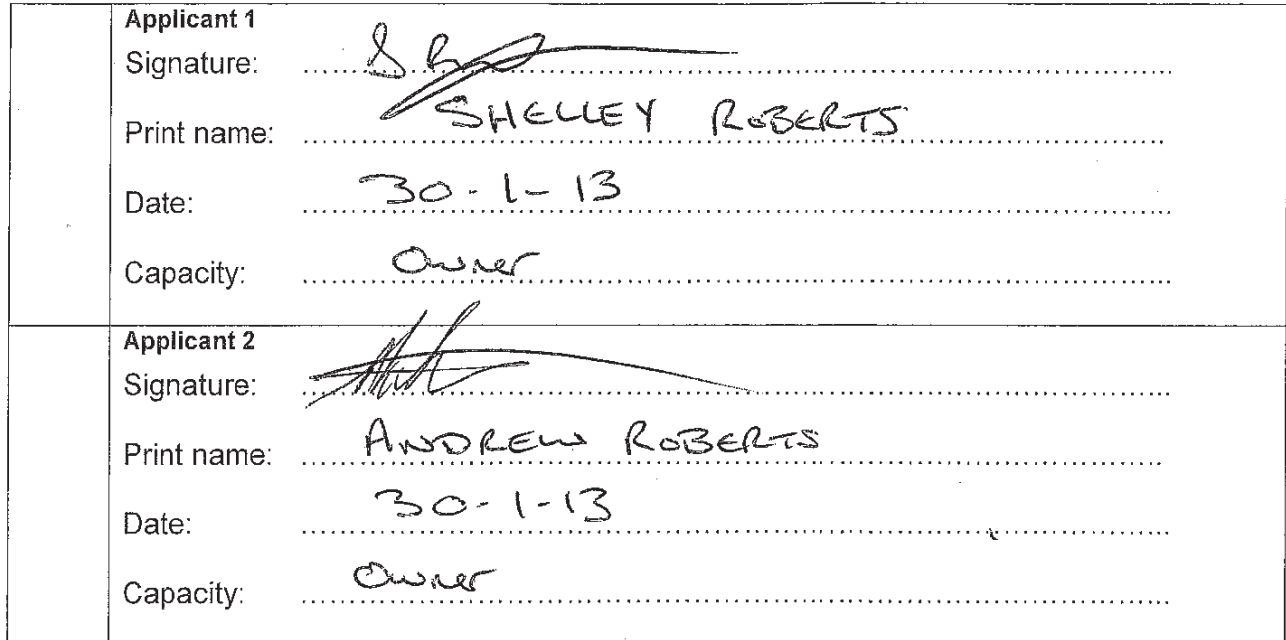 Applicant 1
Signature:
Print name: SHELLEY ROBERTS
Date: 30-1-13
Capacity: Owner
Applicant 2
Signature:
Print name: ANDREW ROBERTS
Date: 30-1-13
Capacity: Owner